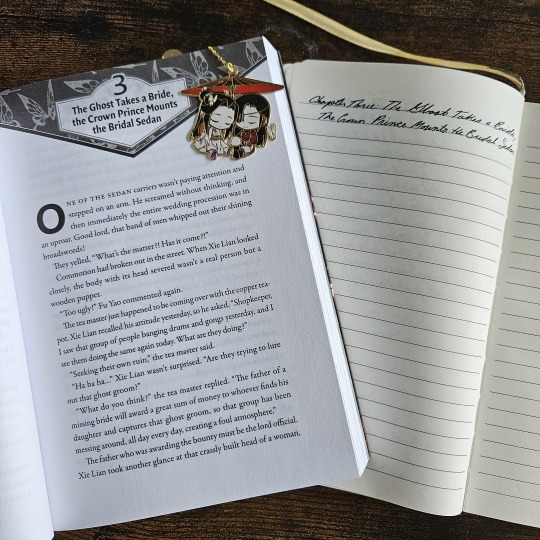 3
The Ghost Takes a Bride,
the Crown Prince Mounts
the Bridal Sedan
ONE OF THE SEDAN carriers wasn't paying attention and
stepped on an arm. He screamed without thinking, and
then immediately the entire wedding procession was in
an uproar. Good lord, that band of men whipped out their shining
broadswords!
They yelled, "What's the matter?! Has it come?!"
Commotion had broken out in the street. When Xie Lian looked
closely, the body with its head severed wasn't a real person but a
wooden puppet.
"Too ugly!" Fu Yao commented again.
The tea master just happened to be coming over with the copper tea-
pot. Xie Lian recalled his attitude yesterday, so he asked, "Shopkeeper,
I saw that group of people banging drums and gongs yesterday, and I
see them doing the same again today. What are they doing?"
"Seeking their own ruin," the tea master said.
"Ha ha ha..." Xie Lian wasn't surprised. "Are they trying to lure
out that ghost groom?"
"What do you think?" the tea master replied. "The father of a
missing bride will award a great sum of money to whoever finds his
daughter and captures that ghost groom, so that group has been
messing around, all day every day, creating a foul atmosphere."
The father who was awarding the bounty must be the lord official.
Xie Lian took another glance at that crassly built head of a woman,
Chapter Three: The Ghost Takes a Bride,
The Crown Prince Mounts the Bridal Sedan